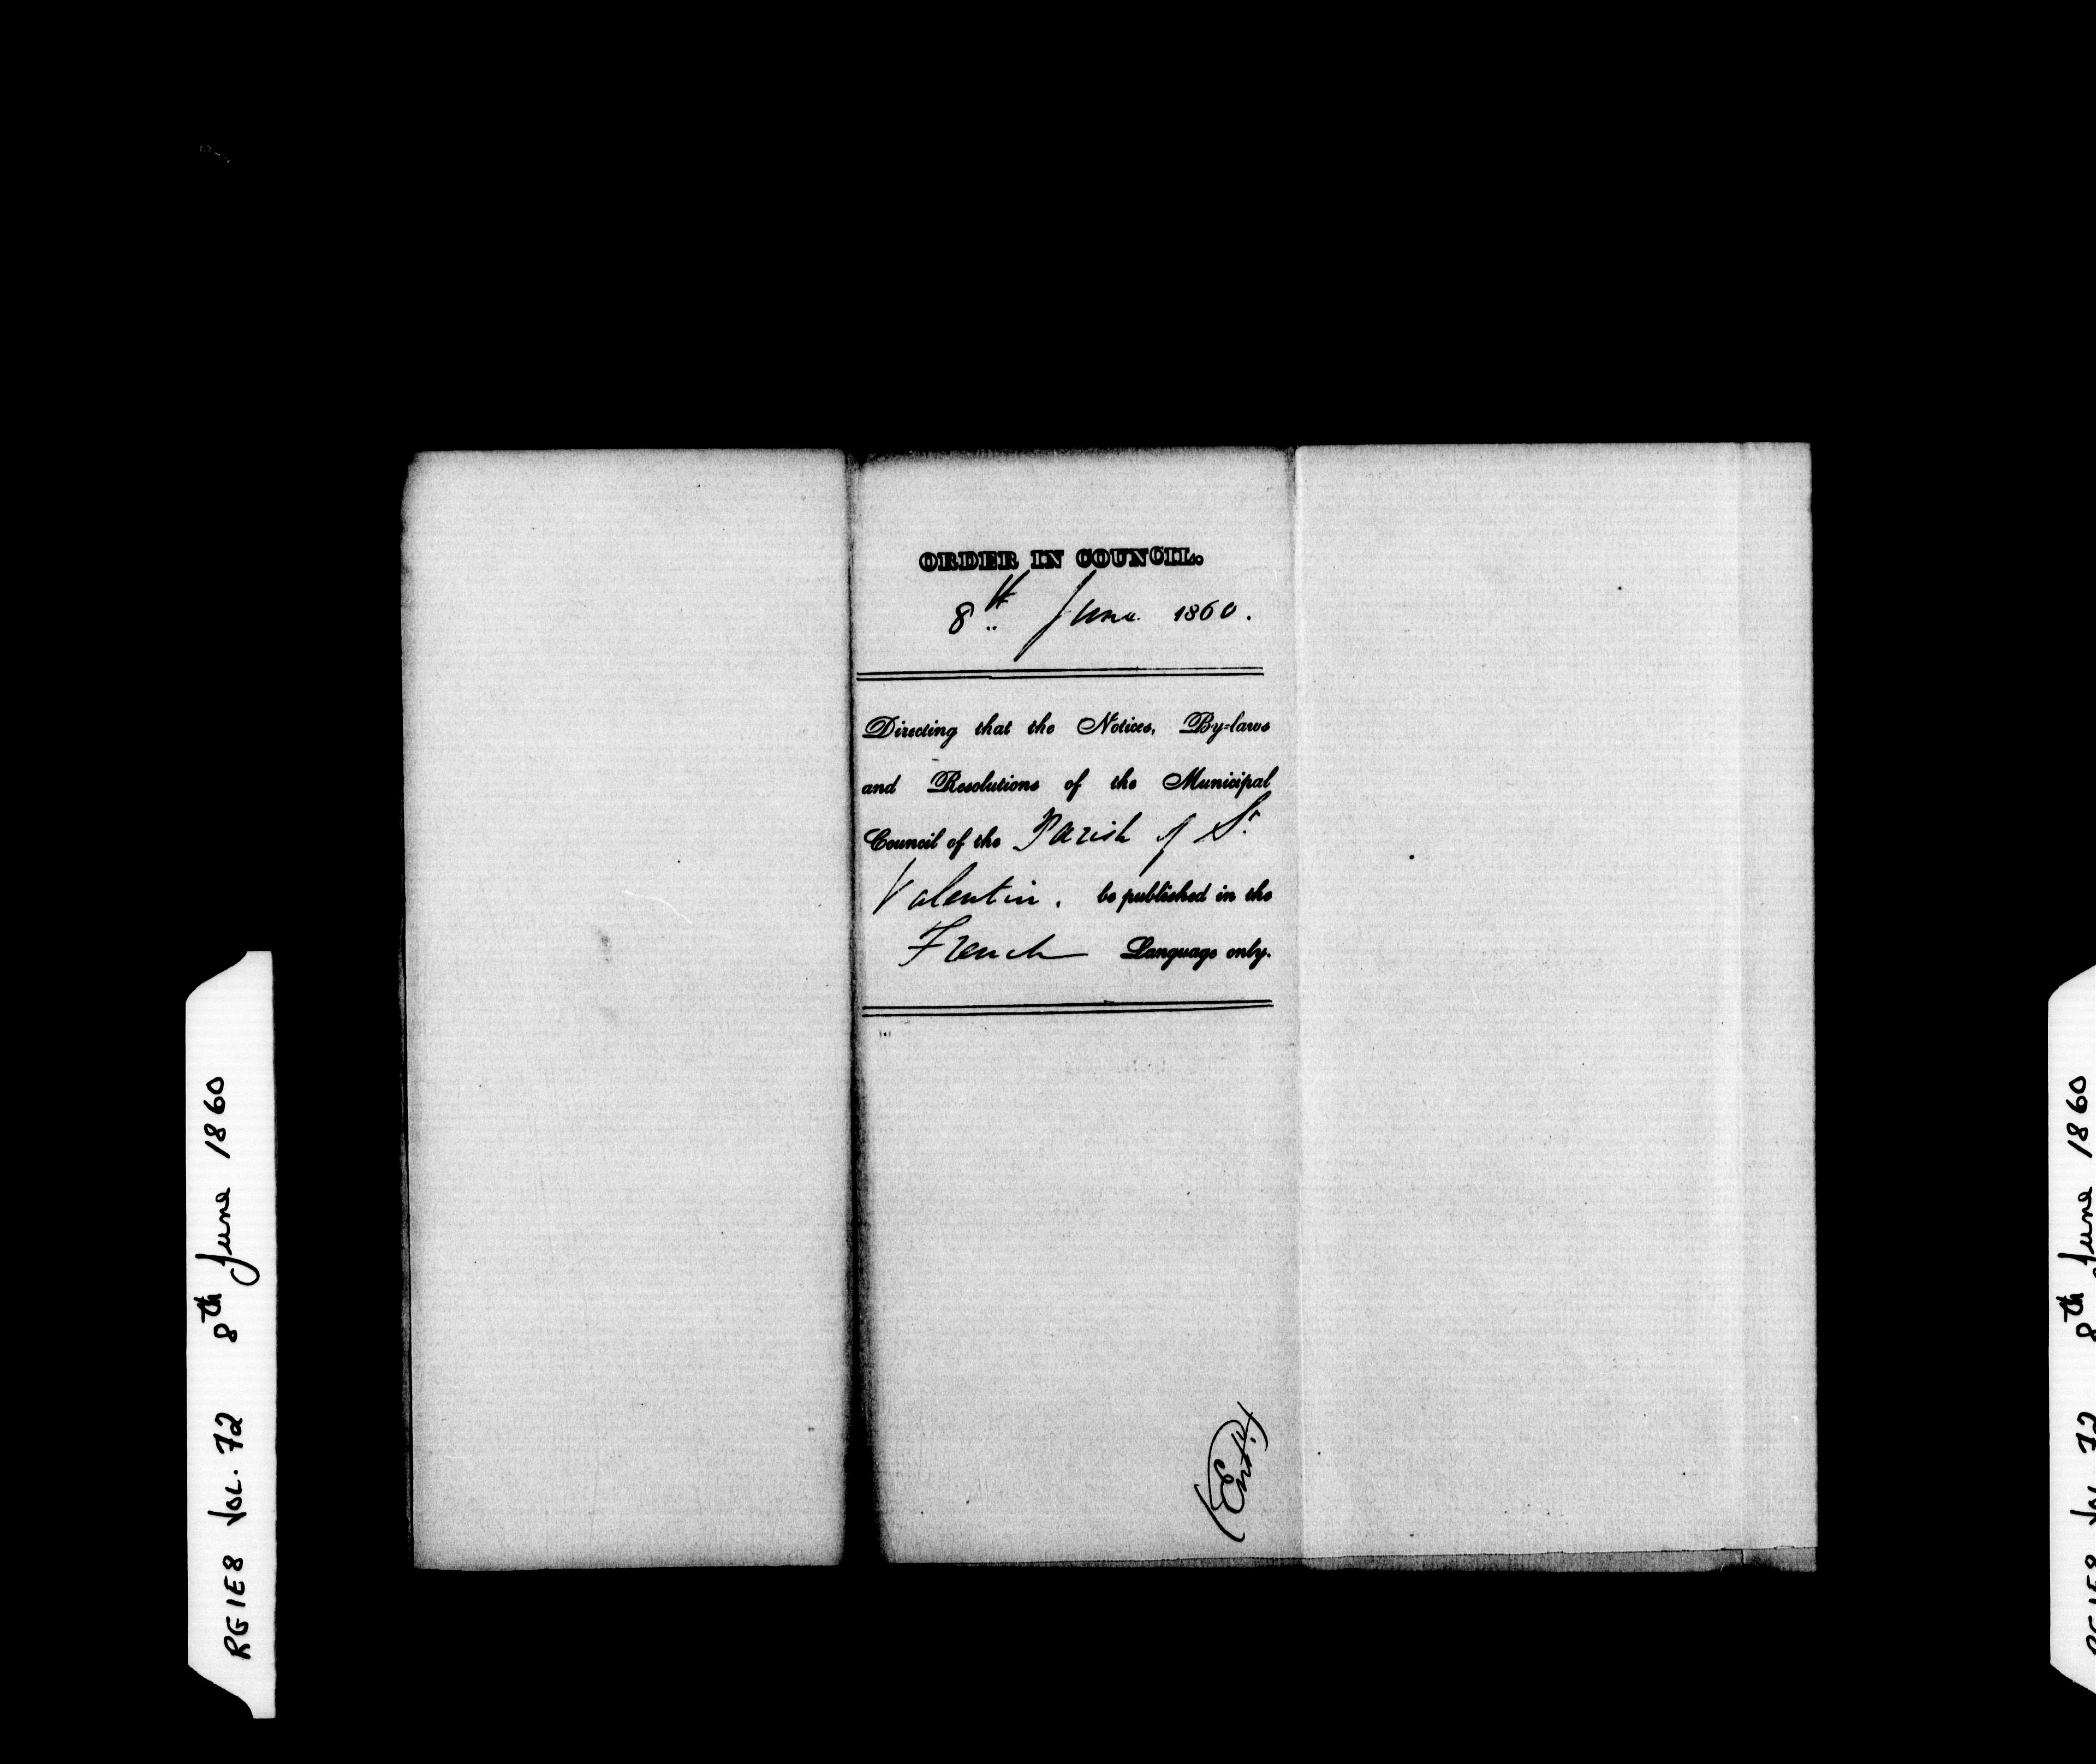 ORDER IN COUNCIL.
8th June 1860.
Directing that the Notices, By-laws
and Resolutions of the Municipal
Council of the Parish of St
Valentin. be published in the
French Language only.
(Entd.)
RG1E8 VOL. 72 8th June 1860
RG1E8 VOL. 72 8th June 1860